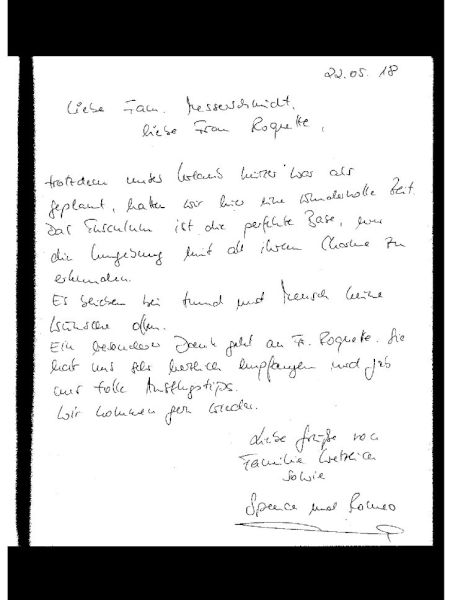 22.05.18
Liebe Fam. Messerschmidt,
liebe Frau Roquette,
trotzdem unser Urlaub kürzer war als
geplant, hatten wir hier eine wundervolle Zeit.
Das Tusculum ist die perfekte Base, um
die Umgebung mit all ihrem Charme zu
erkunden.
Es bleiben bei Hund und Mensch keine
Wünsche offen.
Ein besonderer Dank geht an Fr. Roquette. Sie
hat uns sehr herzlich empfangen und gab
uns tolle Ausflugstips.
Wir kommen gern wieder.
Liebe Grüße von
Familie
sowie
Spence und Romeo